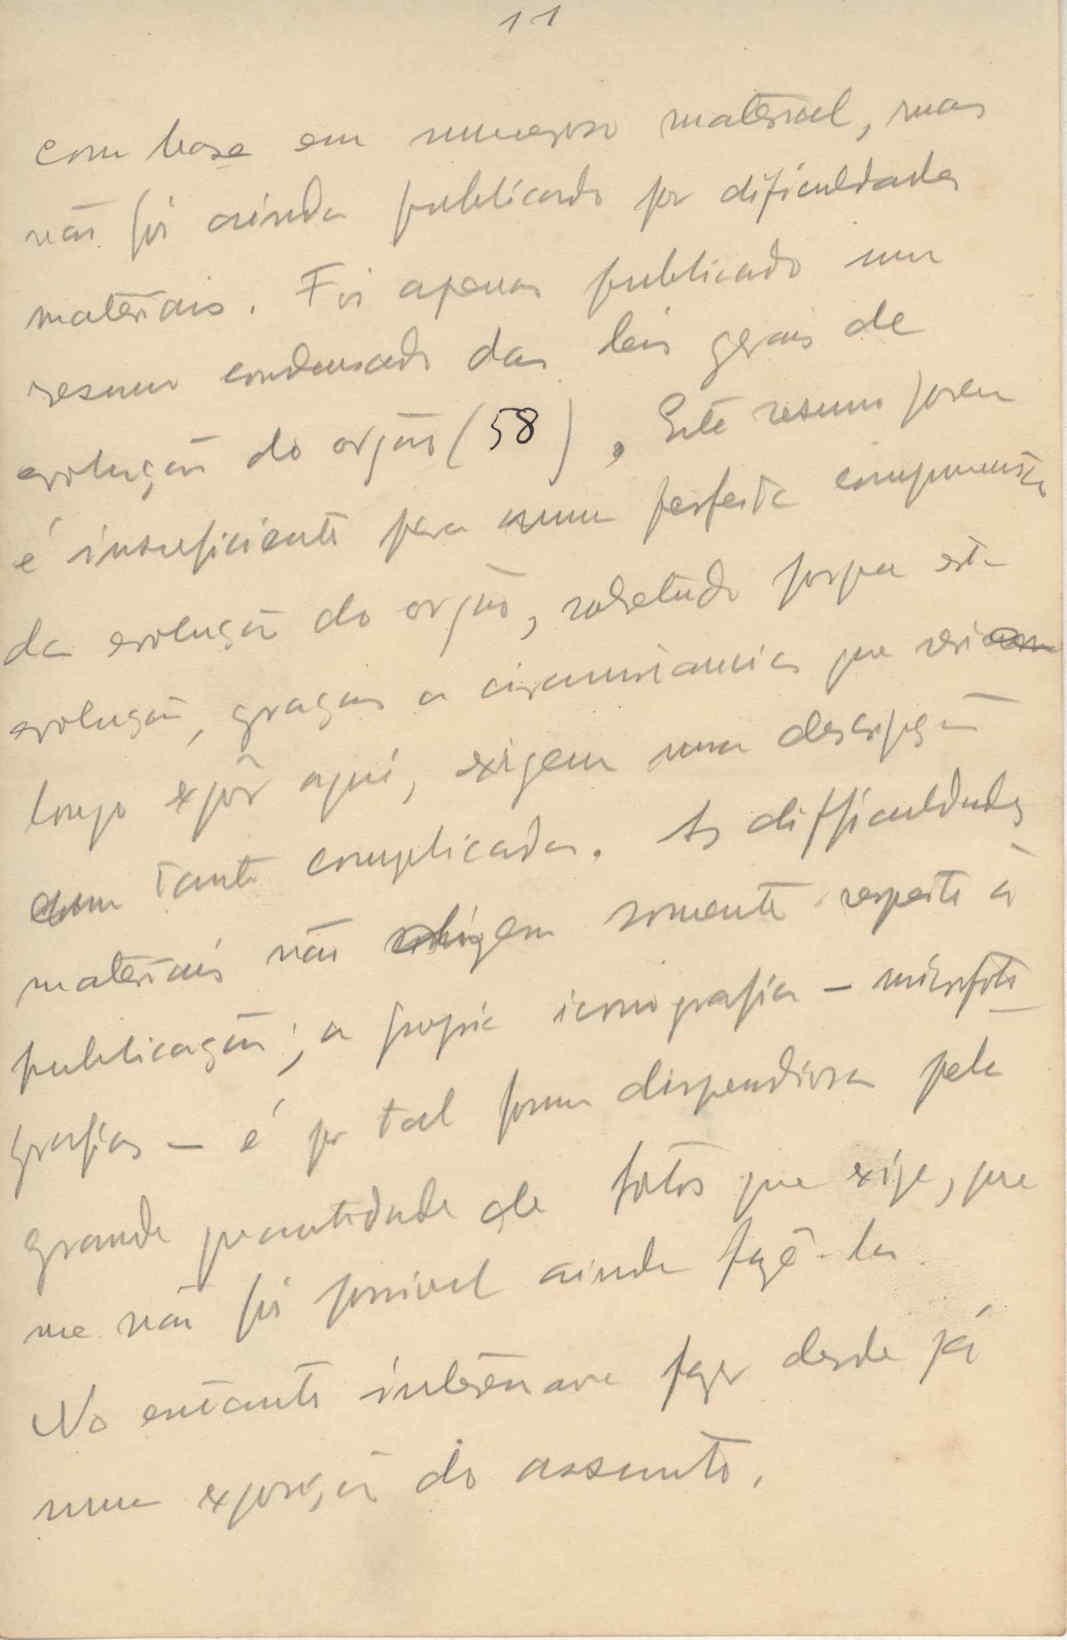 11
com base em numeroso material, mas
não foi ainda publicado por dificuldades
materiais. Foi apenas publicado um
resumo condensado das leis gerais de
evolução do orgão (58). Este resumo porem
é insuficiente para uma perfeita compreensão
da evolução do orgão, sobretudo porque esta
evolução, graças a circunstancias que seria
longo expôr aqui, exigem uma descripção
um tanto complicada. As difficuldades
materiais não dizem somente respeito á
publicação; a propria iconografia – microfoto
grafias – é por tal forma dispendiosa pela
grande quantidade de fotos que exige, que
me não foi possivel ainda fazê-la.
No entanto interessava fazer desde já
uma exposição do assunto.